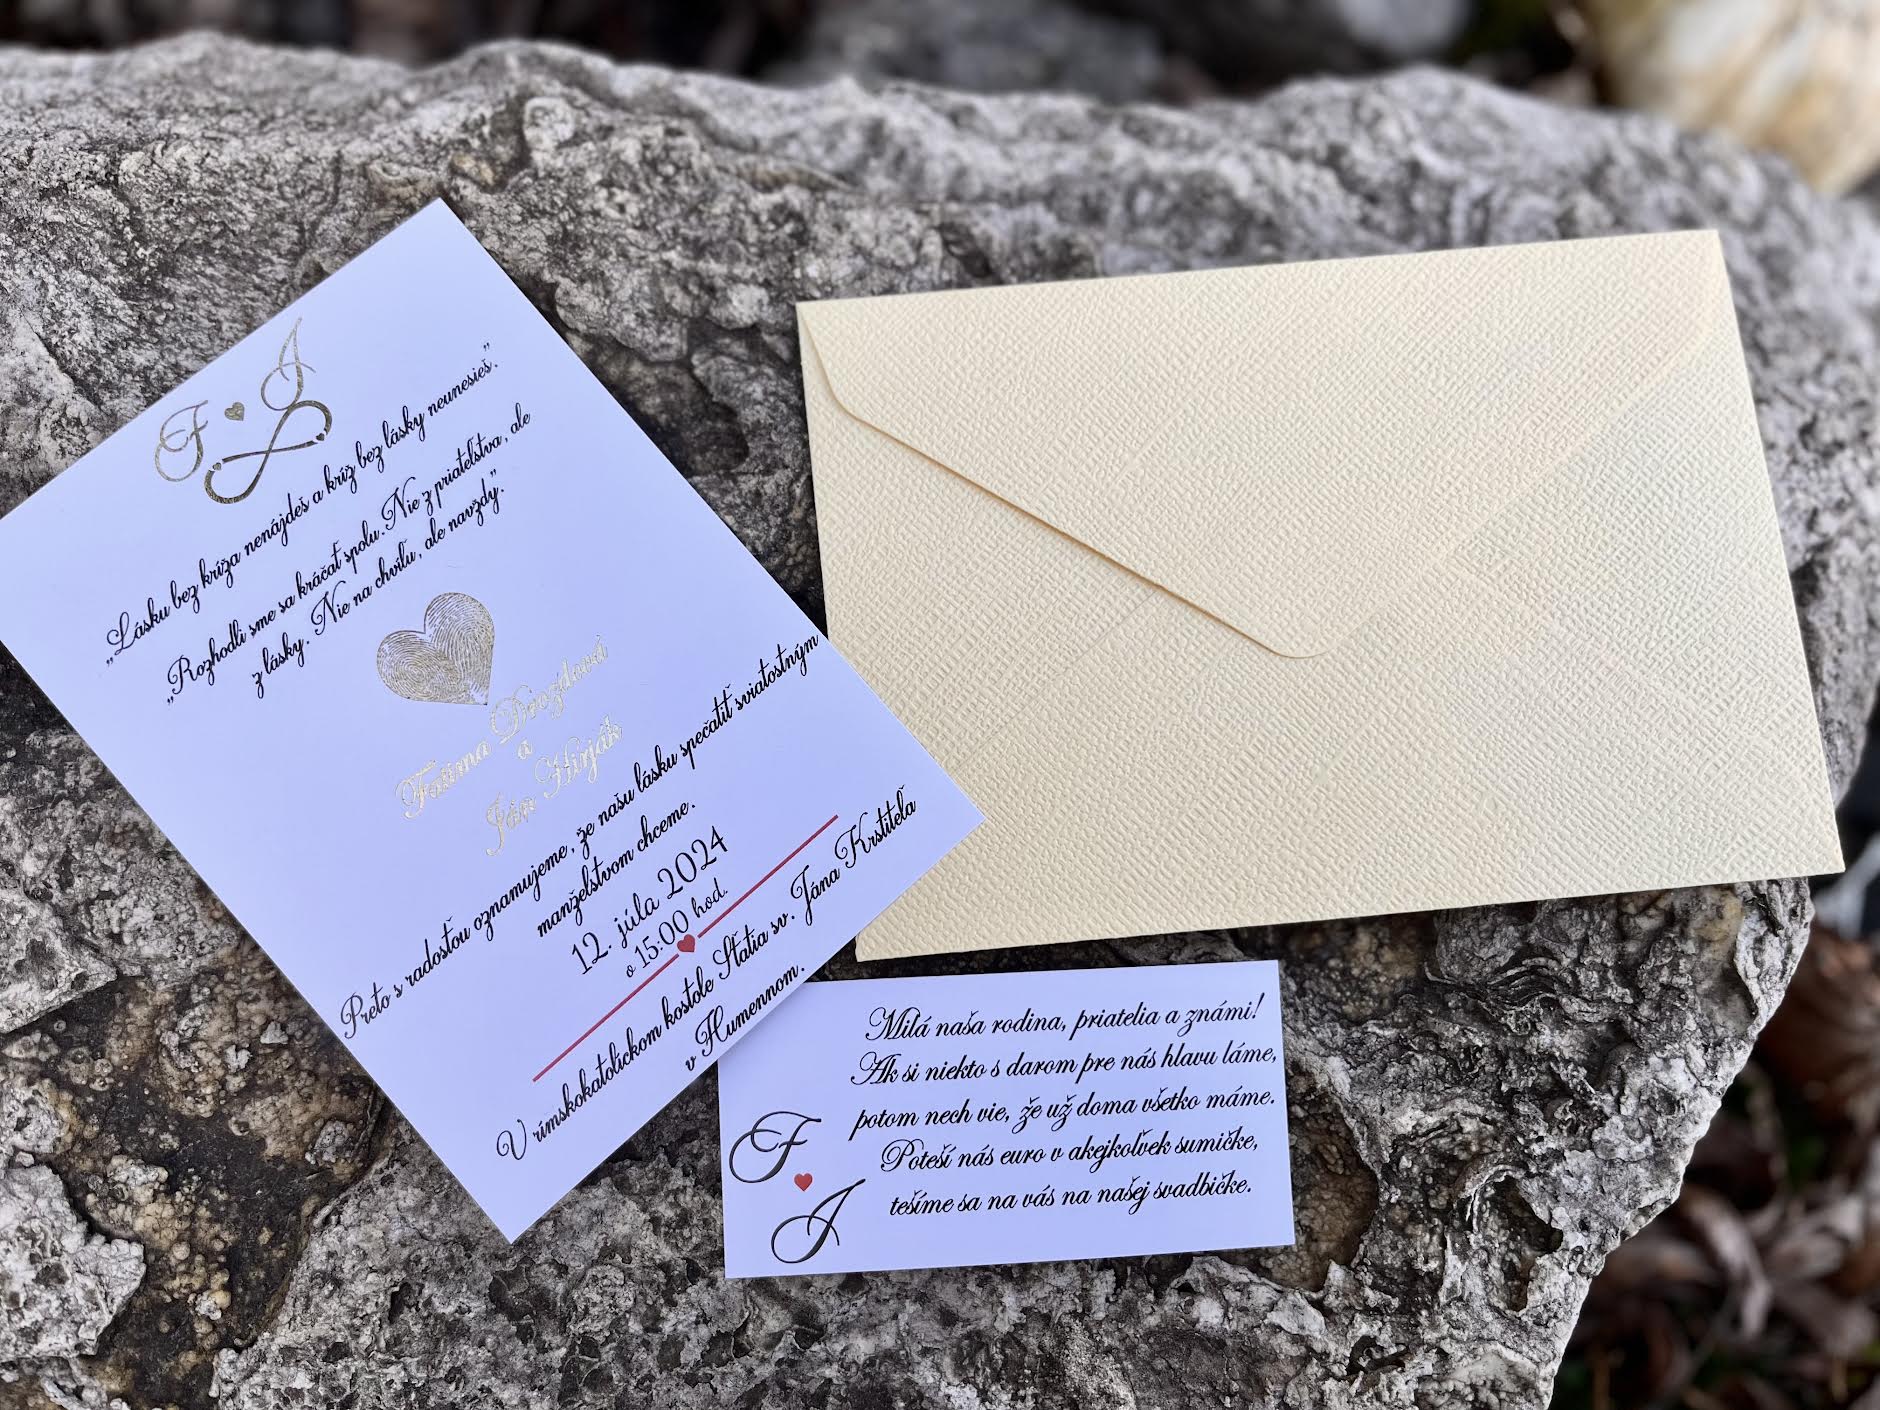 F J
„Lásku bez kríža nenájdeš a kríž bez lásky neunesieš.”
„Rozhodli sme sa kráčať spolu. Nie z priateľstva, ale
z lásky. Nie na chvíľu, ale navždy”.
Fatima Drozdová
a
Ján Hirják
Preto s radosťou oznamujeme, že našu lásku spečatiť sviatostným
manželstvom chceme.
12. júla 2024
o 15:00 hod.
V rímskokatolíckom kostole Sťatia sv. Jána Krstiteľa
v Humennom.
Milá naša rodina, priatelia a známi!
Ak si niekto s darom pre nás hlavu láme,
potom nech vie, že už doma všetko máme.
Poteší nás euro v akejkoľvek sumičke,
tešíme sa na vás na našej svadbičke.
F
J